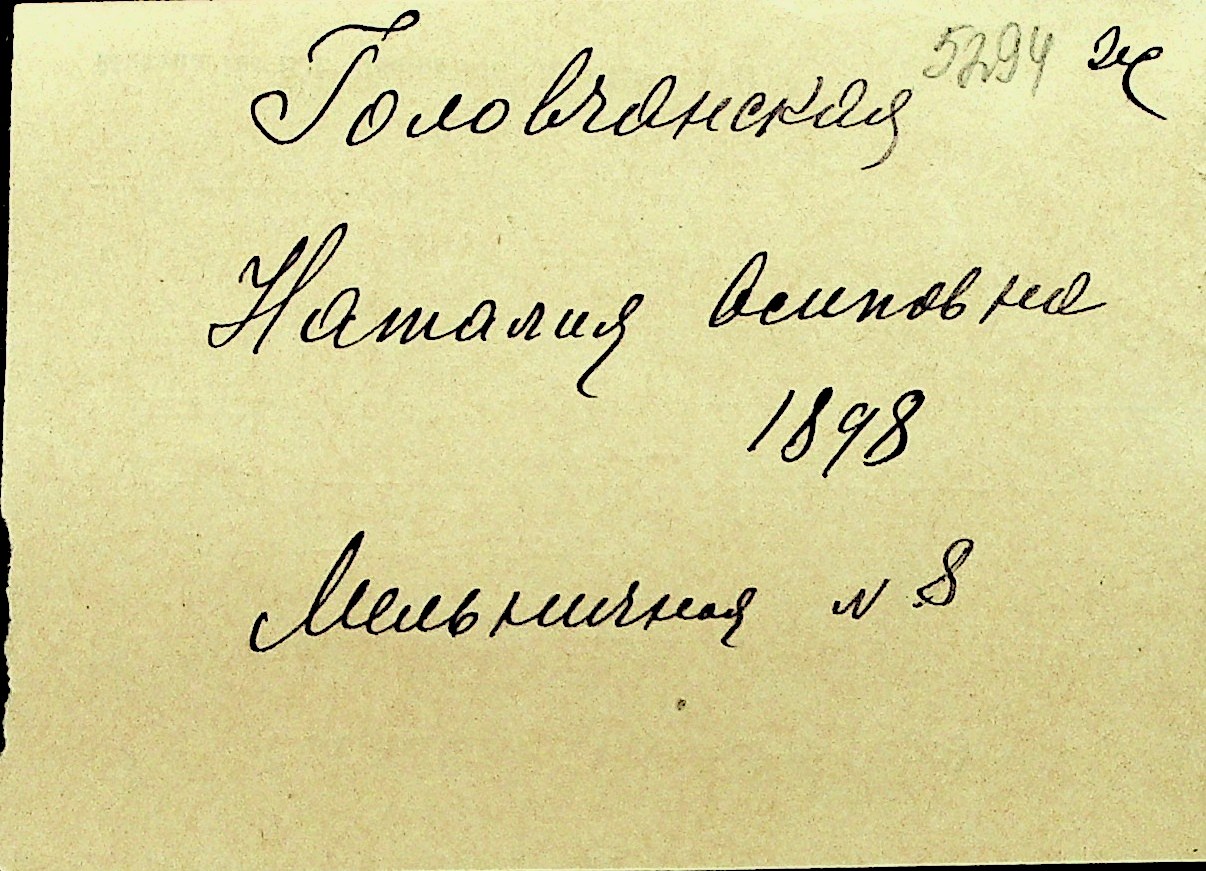 5294 ж
Головчанская
Наталия Осиповна
1898
Мельничная N 8